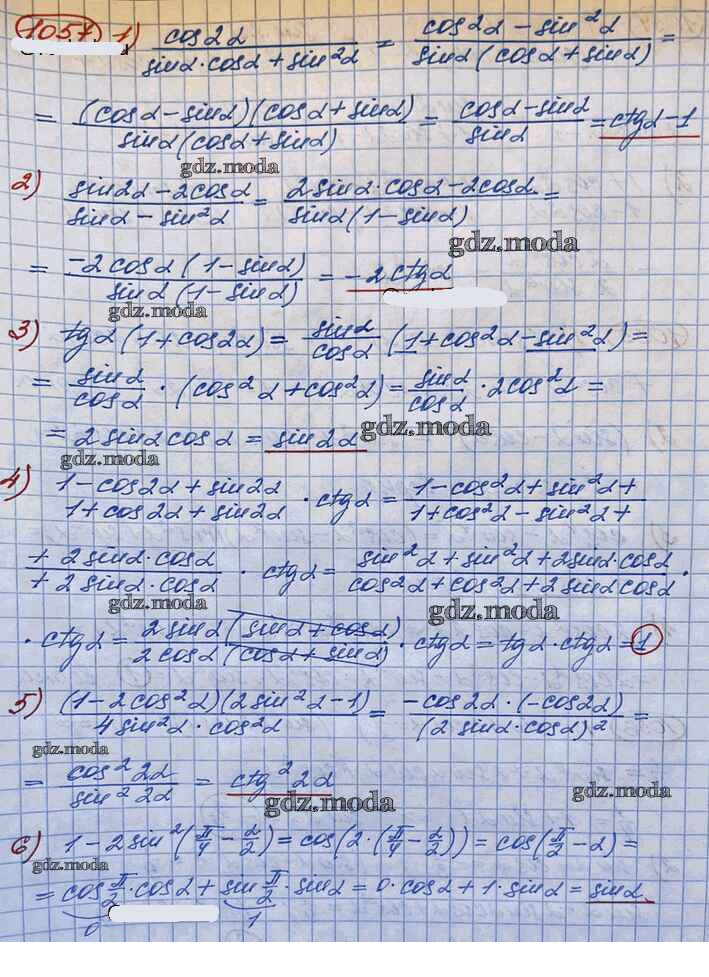 1057 1) cos2α / (sinα·cosα + sin²α) = (cos²α − sin²α) / (sinα(cosα + sinα)) =
= (cosα − sinα)(cosα + sinα) / (sinα(cosα + sinα)) = (cosα − sinα) / sinα = ctgα − 1
gdz.moda
2) (sin2α − 2cosα) / (sinα − sin²α) = (2sinα·cosα − 2cosα) / (sinα(1 − sinα)) =
gdz.moda
= −2cosα(1 − sinα) / (sinα(1 − sinα)) = −2ctgα
gdz.moda
3) tgα(1 + cos2α) = sinα/cosα (1 + cos²α − sin²α) =
= sinα/cosα · (cos²α + cos²α) = sinα/cosα · 2cos²α =
= 2sinαcosα = sin2α gdz.moda
gdz.moda
4) (1 − cos2α + sin2α) / (1 + cos2α + sin2α) · ctgα = (1 − cos²α + sin²α +) / (1 + cos²α − sin²α +)
(+ 2sinα·cosα) / (+ 2sinα·cosα) · ctgα = (sin²α + sin²α + 2sinα·cosα) / (cos²α + cos²α + 2sinαcosα) ·
gdz.moda gdz.moda
· ctgα = 2sinα(sinα + cosα) / (2cosα(cosα + sinα)) · ctgα = tgα·ctgα = 1
5) (1 − 2cos²α)(2sin²α − 1) / (4sin²α·cos²α) = −cos2α·(−cos2α) / (2sinα·cosα)² =
gdz.moda
= cos²2α / sin²2α = ctg²2α
gdz.moda gdz.moda
6) 1 − 2sin²(π/4 − α/2) = cos(2·(π/4 − α/2)) = cos(π/2 − α) =
gdz.moda
= cos π/2 · cosα + sin π/2 · sinα = 0·cosα + 1·sinα = sinα.
0 1